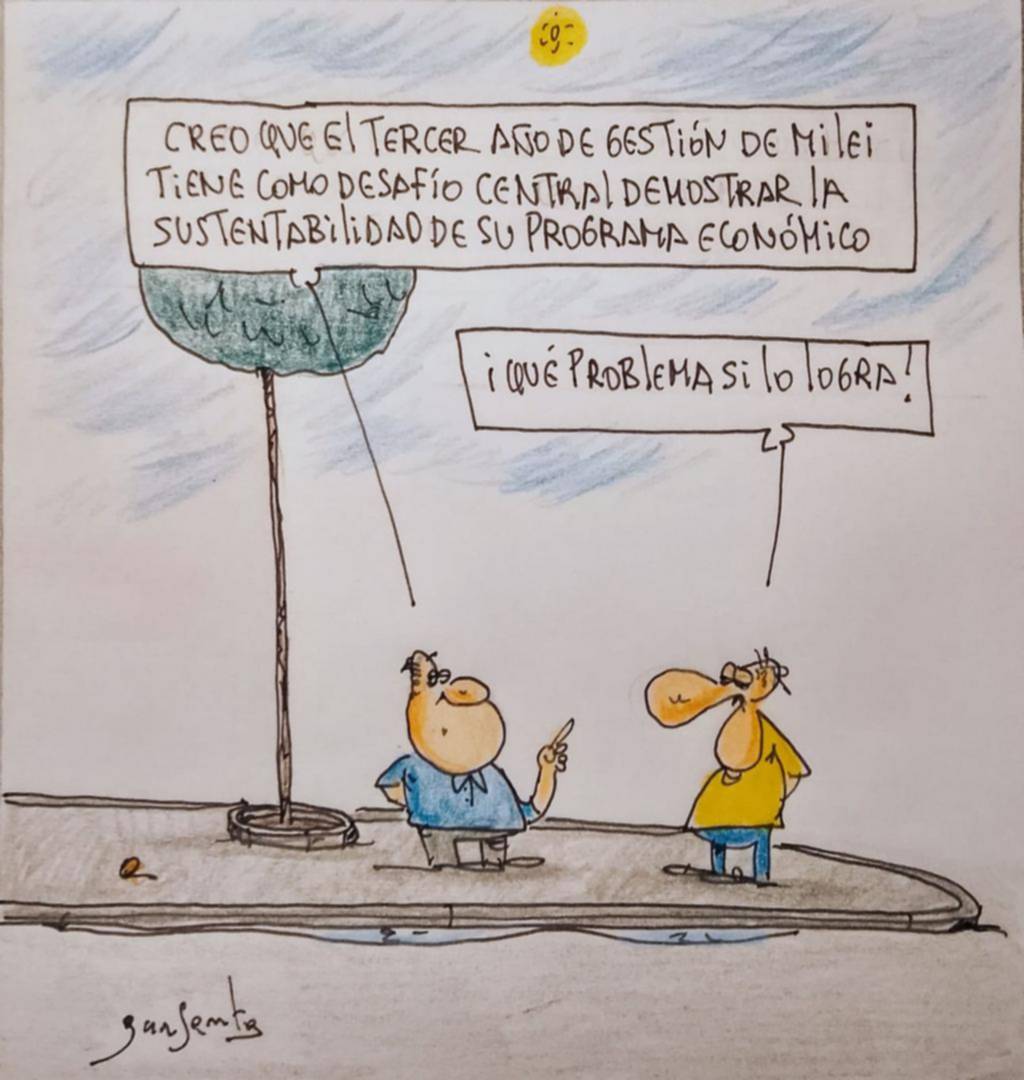 CREO QUE El TERCER AÑO DE GESTIÓN DE Milei
TIENE COMO DESAFÍO CENTRAl DEMOSTRAR lA
SUSTENTABiliDAD DE SU PROGRAMA ECONÓMICO
¡QUÉ PROBlEMA Si lO lOGRA!